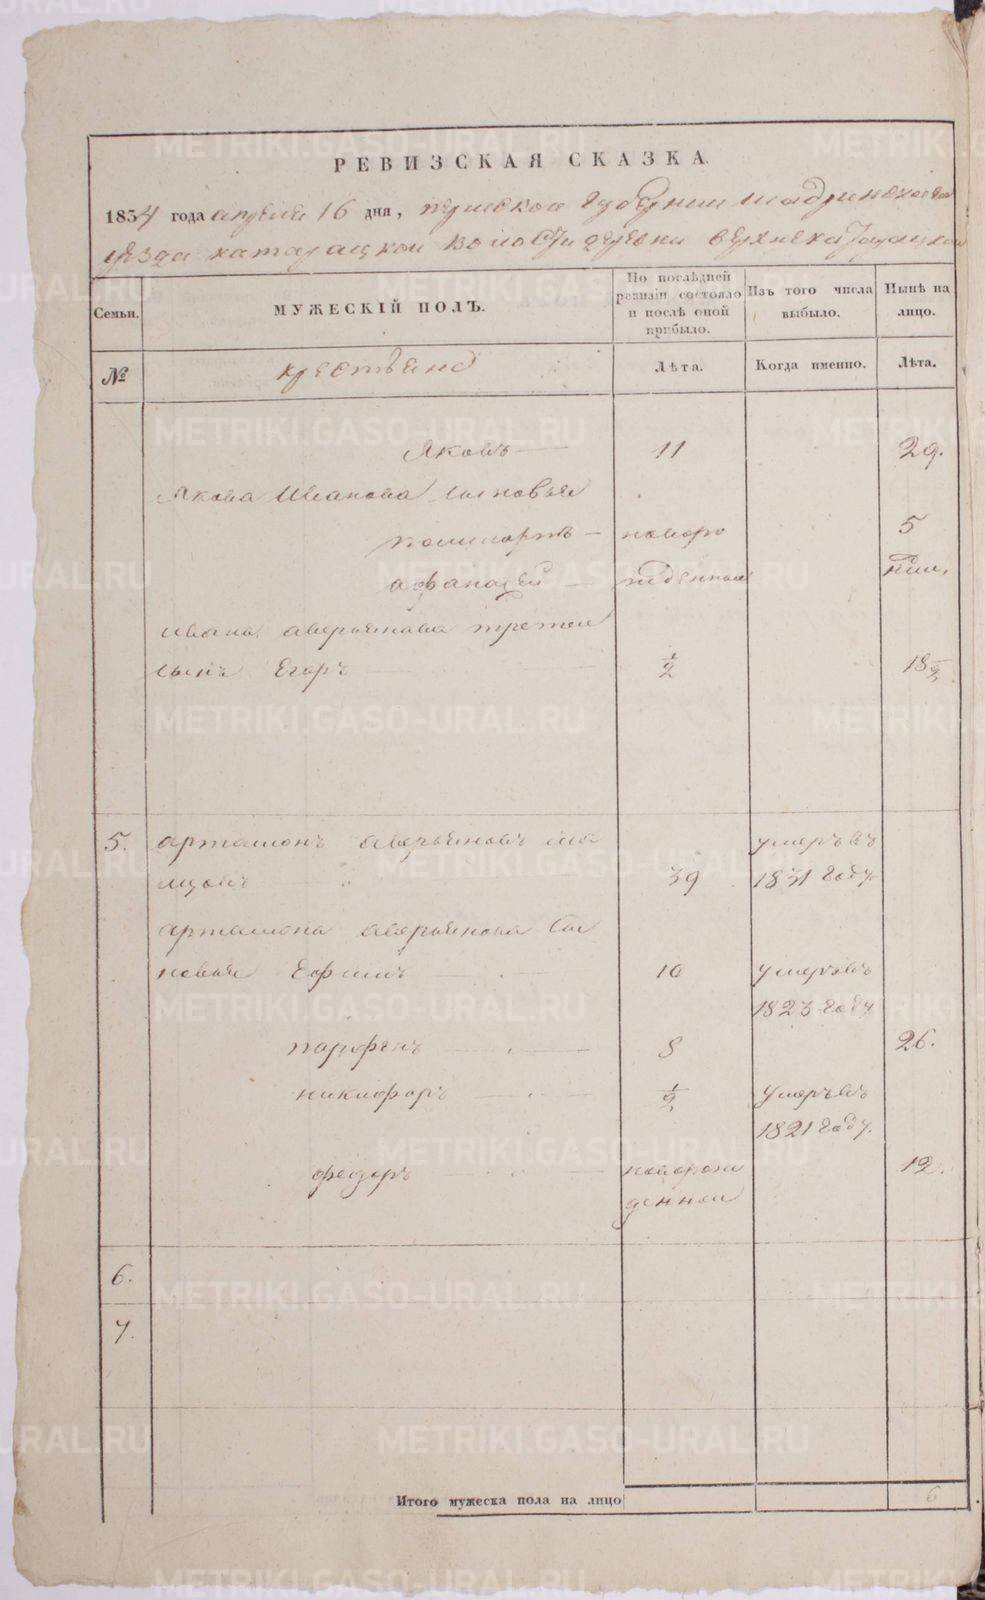 РЕВИЗСКАЯ СКАЗКА.
1834 года апреля 16 дня, пермской губернии шадринского
уезда катарацкой волости деревни верхнека
Семьи. МУЖЕСКІЙ ПОЛЪ. По послѣдней ревизіи состояло и послѣ оной прибыло. Изъ того числа выбыло. Нынѣ на лицо.
№ крестьяне Лѣта. Когда именно. Лѣта.
Яковъ 11 29.
Якова Иванова сыновья
поликарпъ новоро 5
афанасей жденной нед.
ивана аверьянова третей
сынъ Егоръ 1/2 18 1/2
5. артамонъ аверьяновъ умеръ въ
39 1831 году
артамона аверьянова сы
новья Ефимъ 10 умеръ въ
1823 году
парфенъ 8 26.
никифоръ 1/2 умеръ въ
1821 году.
федоръ новорож 12.
денной
6.
7.
Итого мужеска пола на лицо 6
METRIKI.GASO-URAL.RU